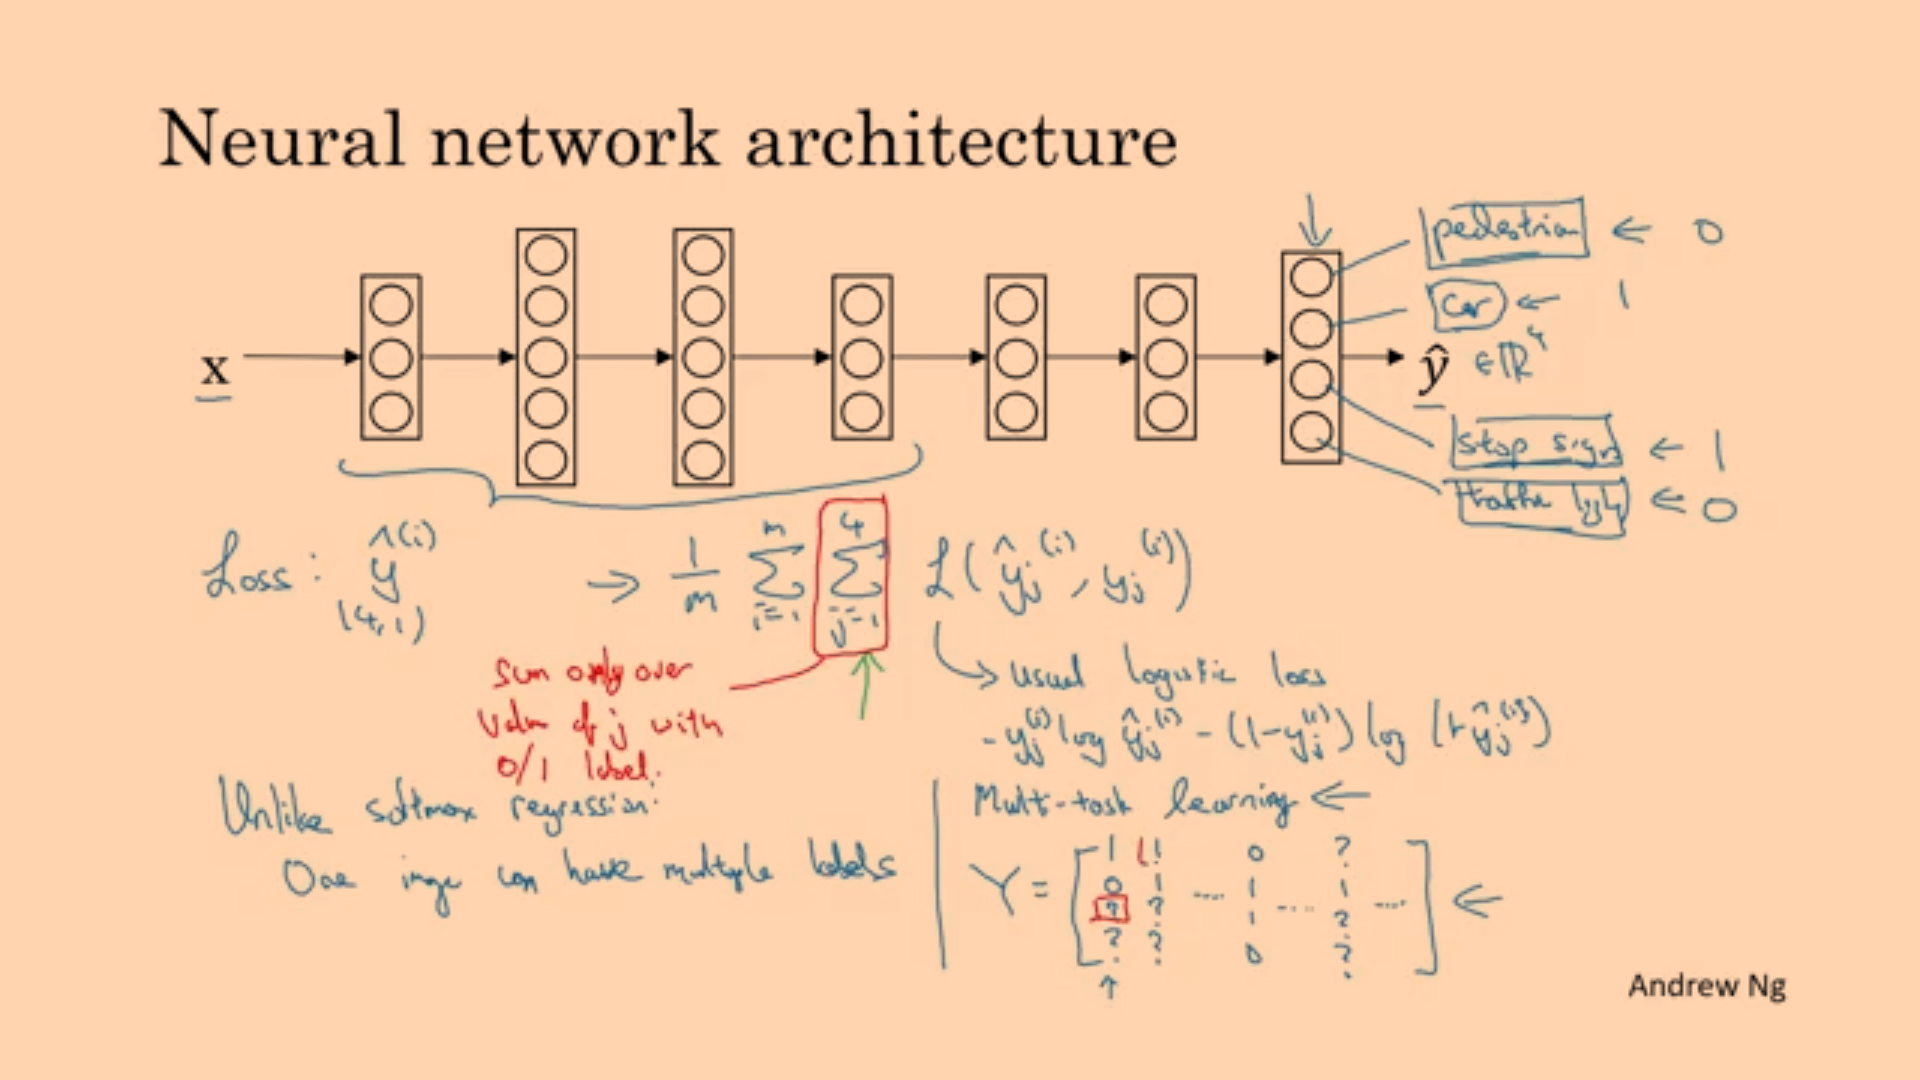 Neural network architecture
pedestrian ← 0
car ← 1
x
ŷ ∈ ℝ⁴
stop sign ← 1
traffic light ← 0
Loss: ŷ^(i) → 1/m Σ_{i=1}^{m} Σ_{j=1}^{4} ℒ(ŷ_j^(i), y_j^(i))
(4,1)
sum only over
value of j with
0/1 label.
→ usual logistic loss
- y_j^(i) log ŷ_j^(i) - (1-y_j^(i)) log (1-ŷ_j^(i))
Unlike softmax regression:
One image can have multiple labels
Multi-task learning ←
Y = [
1 1 0 ?
0 1 .... 1 .... 1 ....
? ? 1 ?
? ? 0 ?
] ←
↑
Andrew Ng